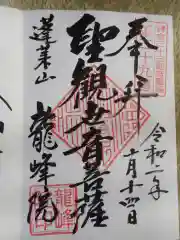 奉拝
令和二年
二月十四日
聖観世音菩薩
蓬莱山
龍峰院